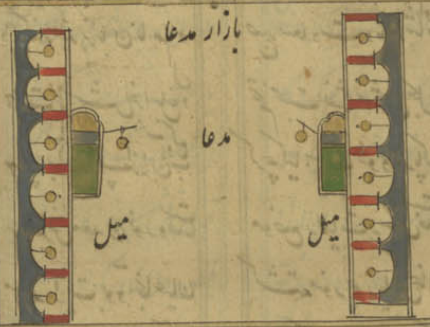 بازار مدعا
مدعا
میل
میل